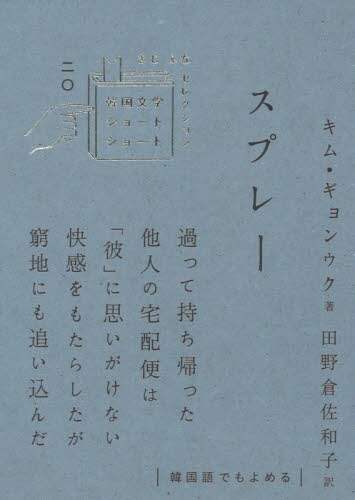 キム・ギョンウク 著 田野倉佐和子 訳
スプレー
セレクション
韓国文学
ショート
ショート
二〇
過って持ち帰った
他人の宅配便は
「彼」に思いがけない
快感をもたらしたが
窮地にも追い込んだ
韓国語でもよめる